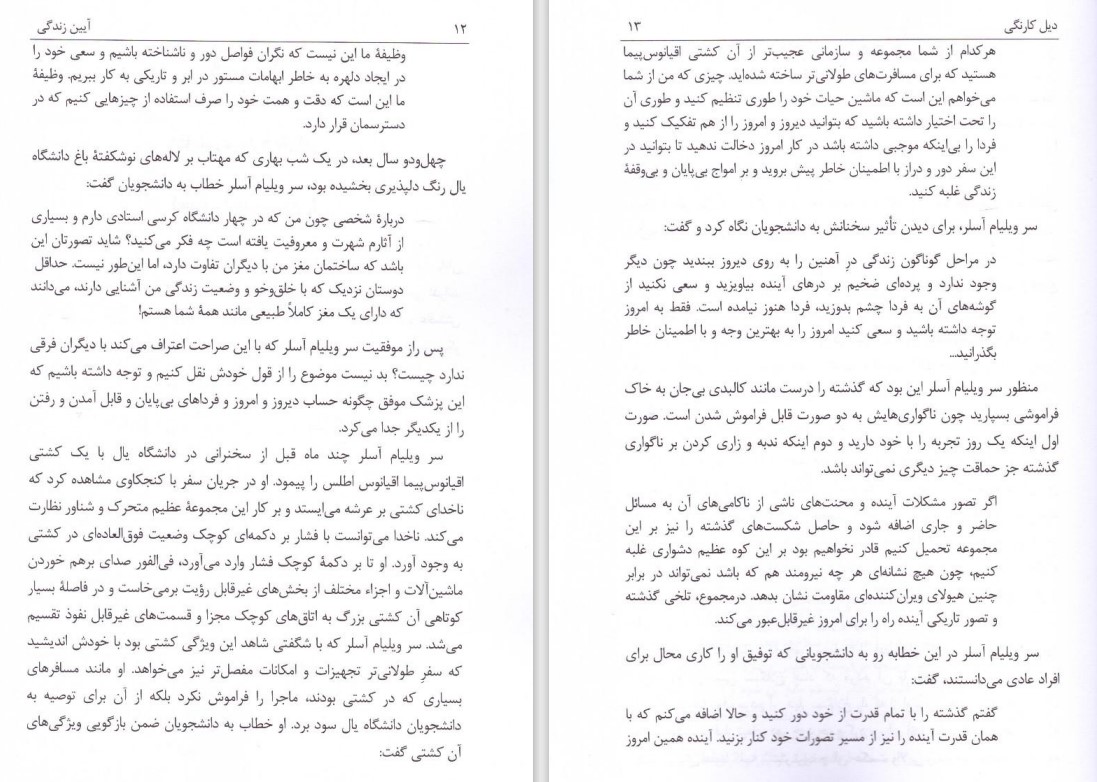 ۱۲ آیین زندگی
وظیفهٔ ما این نیست که نگران فواصل دور و ناشناخته باشیم و سعی خود را
در ایجاد دلهره به خاطر ابهامات مستور در ابر و تاریکی به کار ببریم. وظیفهٔ
ما این است که دقت و همت خود را صرف استفاده از چیزهایی کنیم که در
دسترسمان قرار دارد.
چهل‌ودو سال بعد، در یک شب بهاری که مهتاب بر لاله‌های نوشکفتهٔ باغ دانشگاه
یال رنگ دلپذیری بخشیده بود، سر ویلیام آسلر خطاب به دانشجویان گفت:
دربارهٔ شخصی چون من که در چهار دانشگاه کرسی استادی دارم و بسیاری
از آثارم شهرت و معروفیت یافته است چه فکر می‌کنید؟ شاید تصورتان این
باشد که ساختمان مغز من با دیگران تفاوت دارد، اما این‌طور نیست. حداقل
دوستان نزدیک که با خلق‌وخو و وضعیت زندگی من آشنایی دارند، می‌دانند
که دارای یک مغز کاملاً طبیعی مانند همهٔ شما هستم!
پس راز موفقیت سر ویلیام آسلر که با این صراحت اعتراف می‌کند با دیگران فرقی
ندارد چیست؟ بد نیست موضوع را از قول خودش نقل کنیم و توجه داشته باشیم که
این پزشک موفق چگونه حساب دیروز و امروز و فرداهای بی‌پایان و قابل آمدن و رفتن
را از یکدیگر جدا می‌کرد.
سر ویلیام آسلر چند ماه قبل از سخنرانی در دانشگاه یال با یک کشتی
اقیانوس‌پیما اقیانوس اطلس را پیمود. او در جریان سفر با کنجکاوی مشاهده کرد که
ناخدای کشتی بر عرشه می‌ایستد و بر کار این مجموعهٔ عظیم متحرک و شناور نظارت
می‌کند. ناخدا می‌توانست با فشار بر دکمه‌ای کوچک وضعیت فوق‌العاده‌ای در کشتی
به وجود آورد. او تا بر دکمهٔ کوچک فشار وارد می‌آورد، فی‌الفور صدای برهم خوردن
ماشین‌آلات و اجزاء مختلف از بخش‌های غیرقابل رؤیت برمی‌خاست و در فاصلهٔ بسیار
کوتاهی آن کشتی بزرگ به اتاق‌های کوچک مجزا و قسمت‌های غیرقابل نفوذ تقسیم
می‌شد. سر ویلیام آسلر که با شگفتی شاهد این ویژگی کشتی بود با خودش اندیشید
که سفرِ طولانی‌تر تجهیزات و امکانات مفصل‌تر نیز می‌خواهد. او مانند مسافرهای
بسیاری که در کشتی بودند، ماجرا را فراموش نکرد بلکه از آن برای توصیه به
دانشجویان دانشگاه یال سود برد. او خطاب به دانشجویان ضمن بازگویی ویژگی‌های
آن کشتی گفت:
دیل کارنگی ۱۳
هرکدام از شما مجموعه و سازمانی عجیب‌تر از آن کشتی اقیانوس‌پیما
هستید که برای مسافرت‌های طولانی‌تر ساخته شده‌اید. چیزی که من از شما
می‌خواهم این است که ماشین حیات خود را طوری تنظیم کنید و طوری آن
را تحت اختیار داشته باشید که بتوانید دیروز و امروز را از هم تفکیک کنید و
فردا را بی‌اینکه موجبی داشته باشد در کار امروز دخالت ندهید تا بتوانید در
این سفر دور و دراز با اطمینان خاطر پیش بروید و بر امواج بی‌پایان و بی‌وقفهٔ
زندگی غلبه کنید.
سر ویلیام آسلر، برای دیدن تأثیر سخنانش به دانشجویان نگاه کرد و گفت:
در مراحل گوناگون زندگی درِ آهنین را به روی دیروز ببندید چون دیگر
وجود ندارد و پرده‌ای ضخیم بر درهای آینده بیاویزید و سعی نکنید از
گوشه‌های آن به فردا چشم بدوزید، فردا هنوز نیامده است. فقط به امروز
توجه داشته باشید و سعی کنید امروز را به بهترین وجه و با اطمینان خاطر
بگذرانید...
منظور سر ویلیام آسلر این بود که گذشته را درست مانند کالبدی بی‌جان به خاک
فراموشی بسپارید چون ناگواری‌هایش به دو صورت قابل فراموش شدن است. صورت
اول اینکه یک روز تجربه را با خود دارید و دوم اینکه ندبه و زاری کردن بر ناگواری
گذشته جز حماقت چیز دیگری نمی‌تواند باشد.
اگر تصور مشکلات آینده و محنت‌های ناشی از ناکامی‌های آن به مسائل
حاضر و جاری اضافه شود و حاصل شکست‌های گذشته را نیز بر این
مجموعه تحمیل کنیم قادر نخواهیم بود بر این کوه عظیم دشواری غلبه
کنیم، چون هیچ نشانه‌ای هر چه نیرومند هم که باشد نمی‌تواند در برابر
چنین هیولای ویران‌کننده‌ای مقاومت نشان بدهد. درمجموع، تلخی گذشته
و تصور تاریکی آینده راه را برای امروز غیرقابل‌عبور می‌کند.
سر ویلیام آسلر در این خطابه رو به دانشجویانی که توفیق او را کاری محال برای
افراد عادی می‌دانستند، گفت:
گفتم گذشته را با تمام قدرت از خود دور کنید و حالا اضافه می‌کنم که با
همان قدرت آینده را نیز از مسیر تصورات خود کنار بزنید. آینده همین امروز